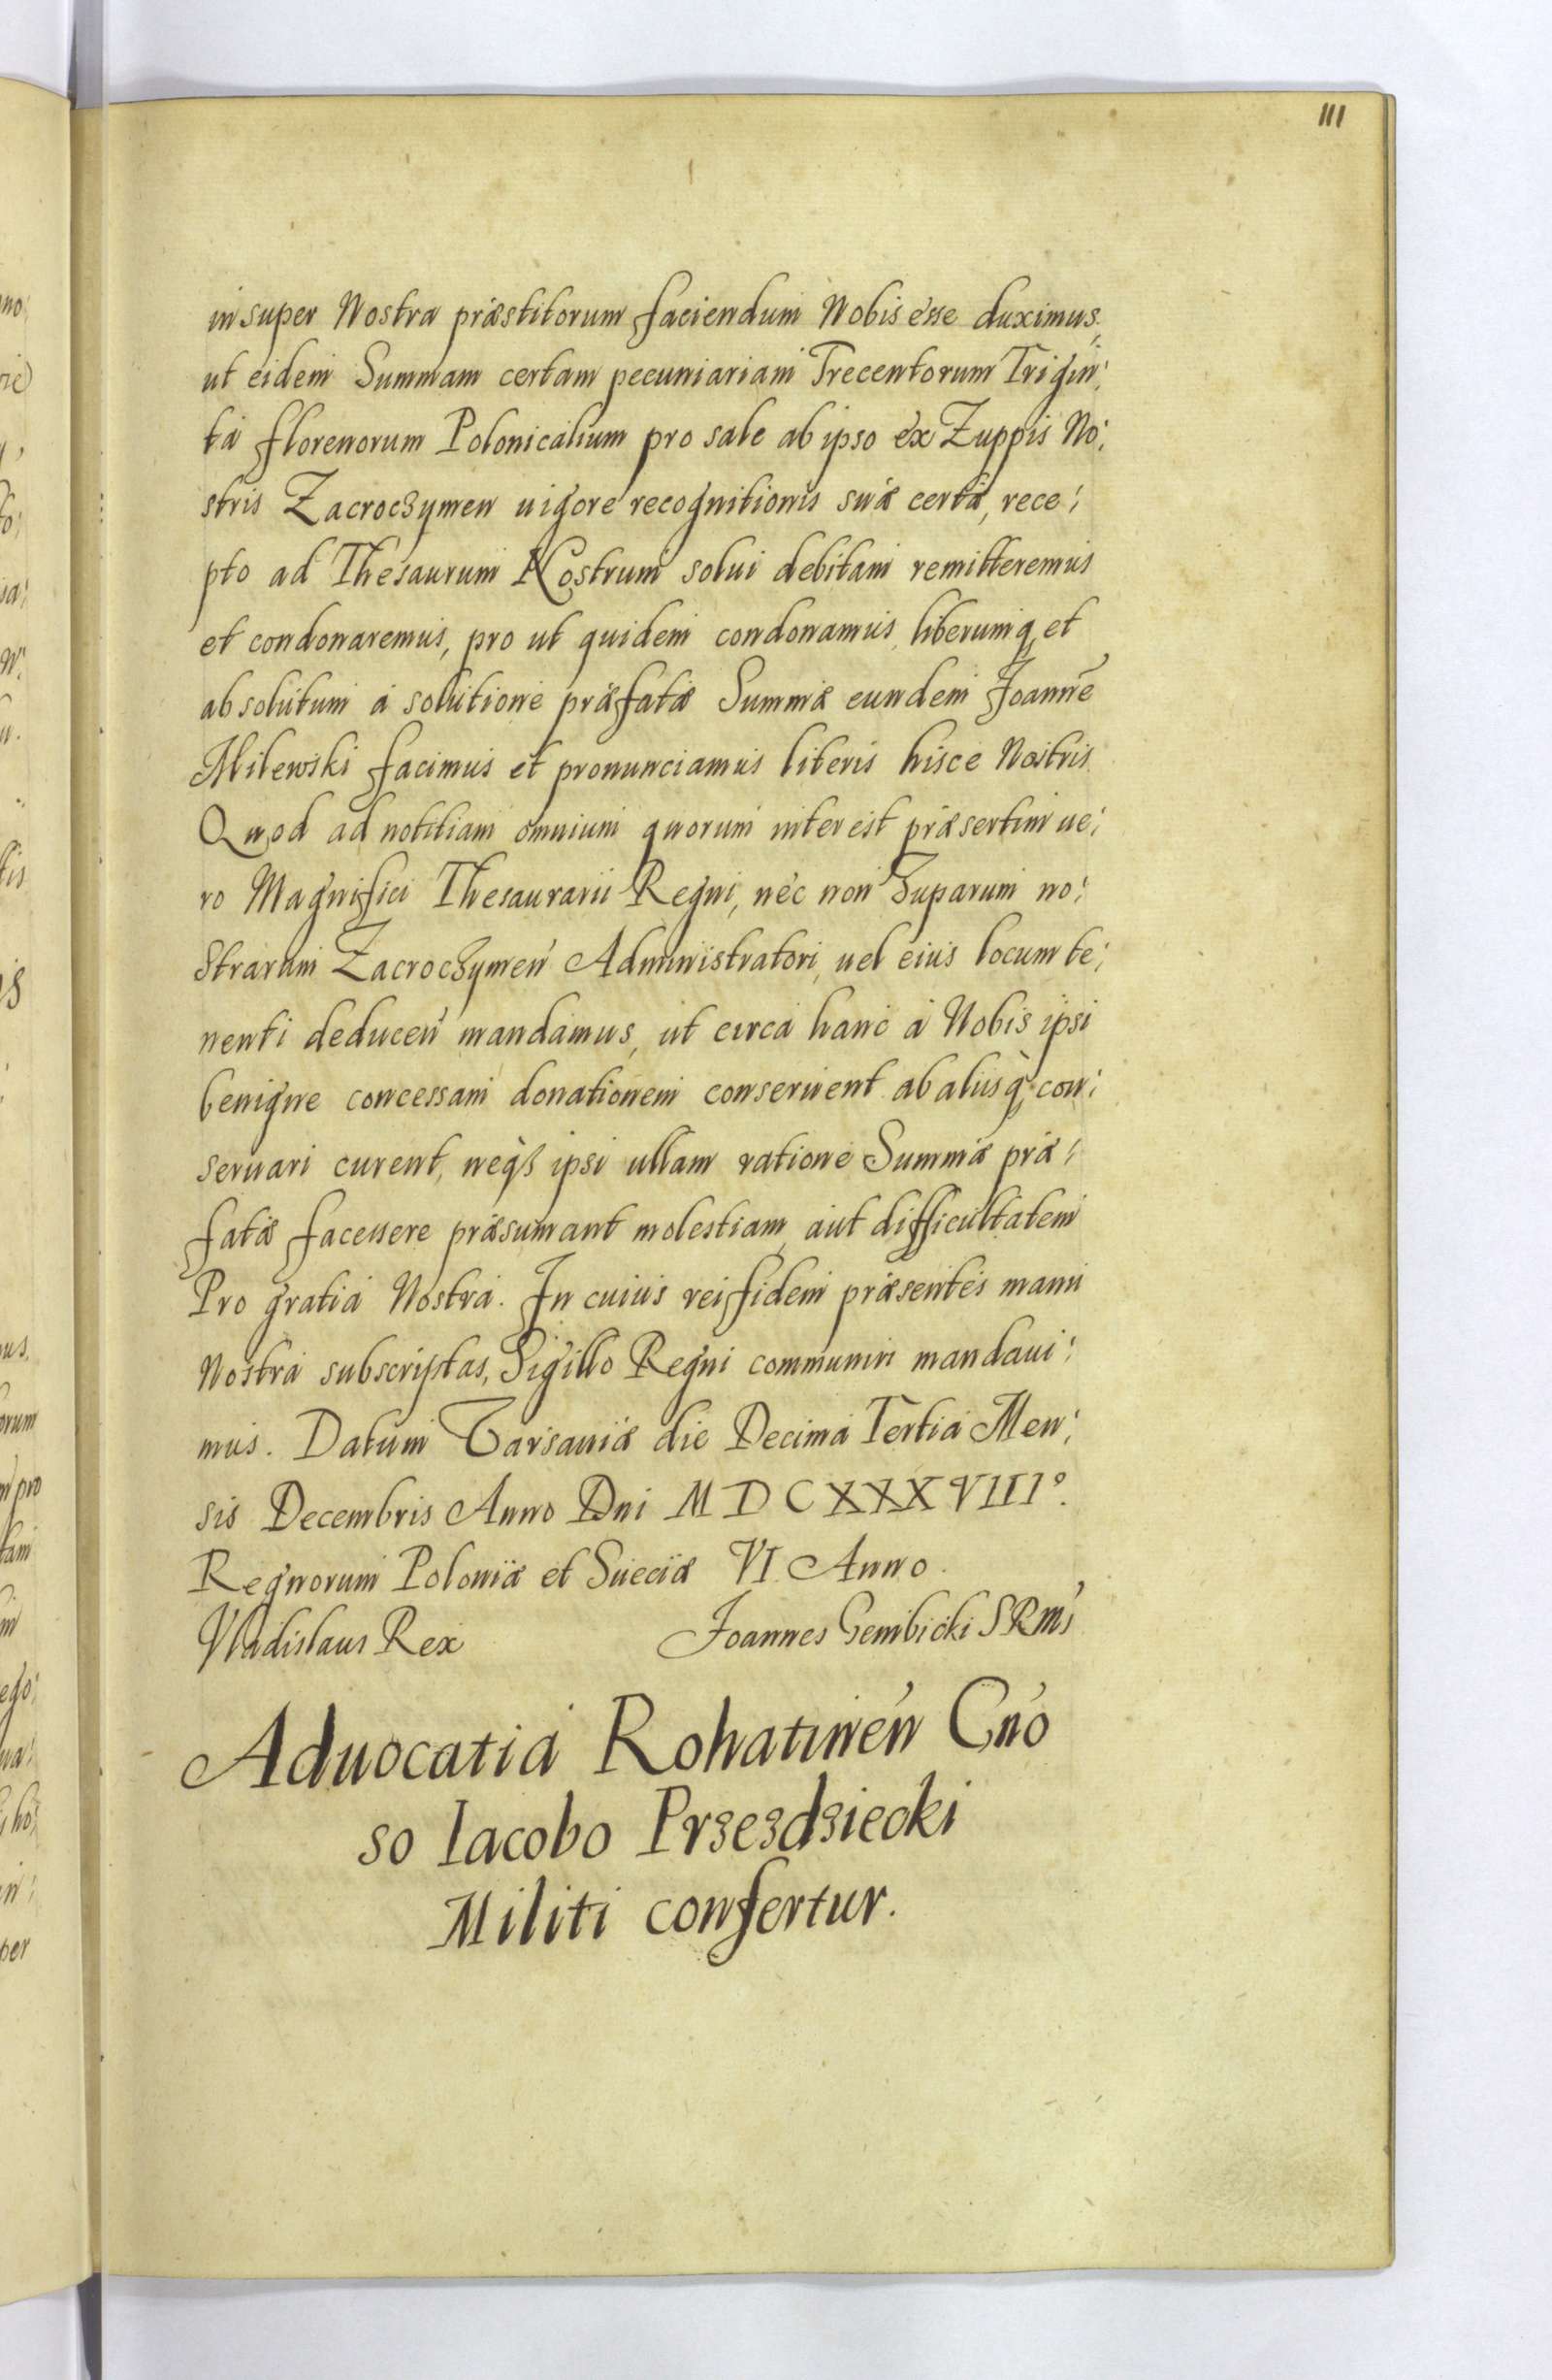 111
insuper Nostra præstitorum faciendum Nobis esse duximus,
ut eidem Summam certam pecuniariam Trecentorum Trigin:
ta florenorum Polonicalium pro sale ab ipso ex Zuppis No:
stris Zacroczymen vigore recognitionis suæ certa, rece:
pto ad Thesaurum Nostrum solui debitam remitteremus
et condonaremus, pro ut quidem condonamus, liberumq, et
absolutum à solutione præfatæ Summæ eundem Joannē
Milewski facimus et pronunciamus literis hisce Nostris
Quod ad notitiam omnium quorum interest præsertim ue:
ro Magnifici Thesaurarii Regni, nec non Zuparum no:
strarum Zacroczymen Administratori, uel eius locum te:
nenti deducen mandamus, ut circa hanc à Nobis ipsi
benigne concessam donationem conseruent ab alijsq, con:
seruari curent, neqȝ ipsi ullam ratione Summæ præ:
fatæ facessere præsumant molestiam, aut difficultatem
Pro gratia Nostra. In cuius rei fidem præsentes manu
Nostra subscriptas, Sigillo Regni communiri mandaui:
mus. Datum Varsauiæ die Decima Tertia Men:
sis Decembris Anno Dni M D C XXXVIII°.
Regnorum Poloniæ et Sueciæ VI Anno.
Vladislaus Rex Joannes Gembicki SRMs
Aduocatia Rohatinen Gno
so Iacobo Przezdziecki
Militi confertur.